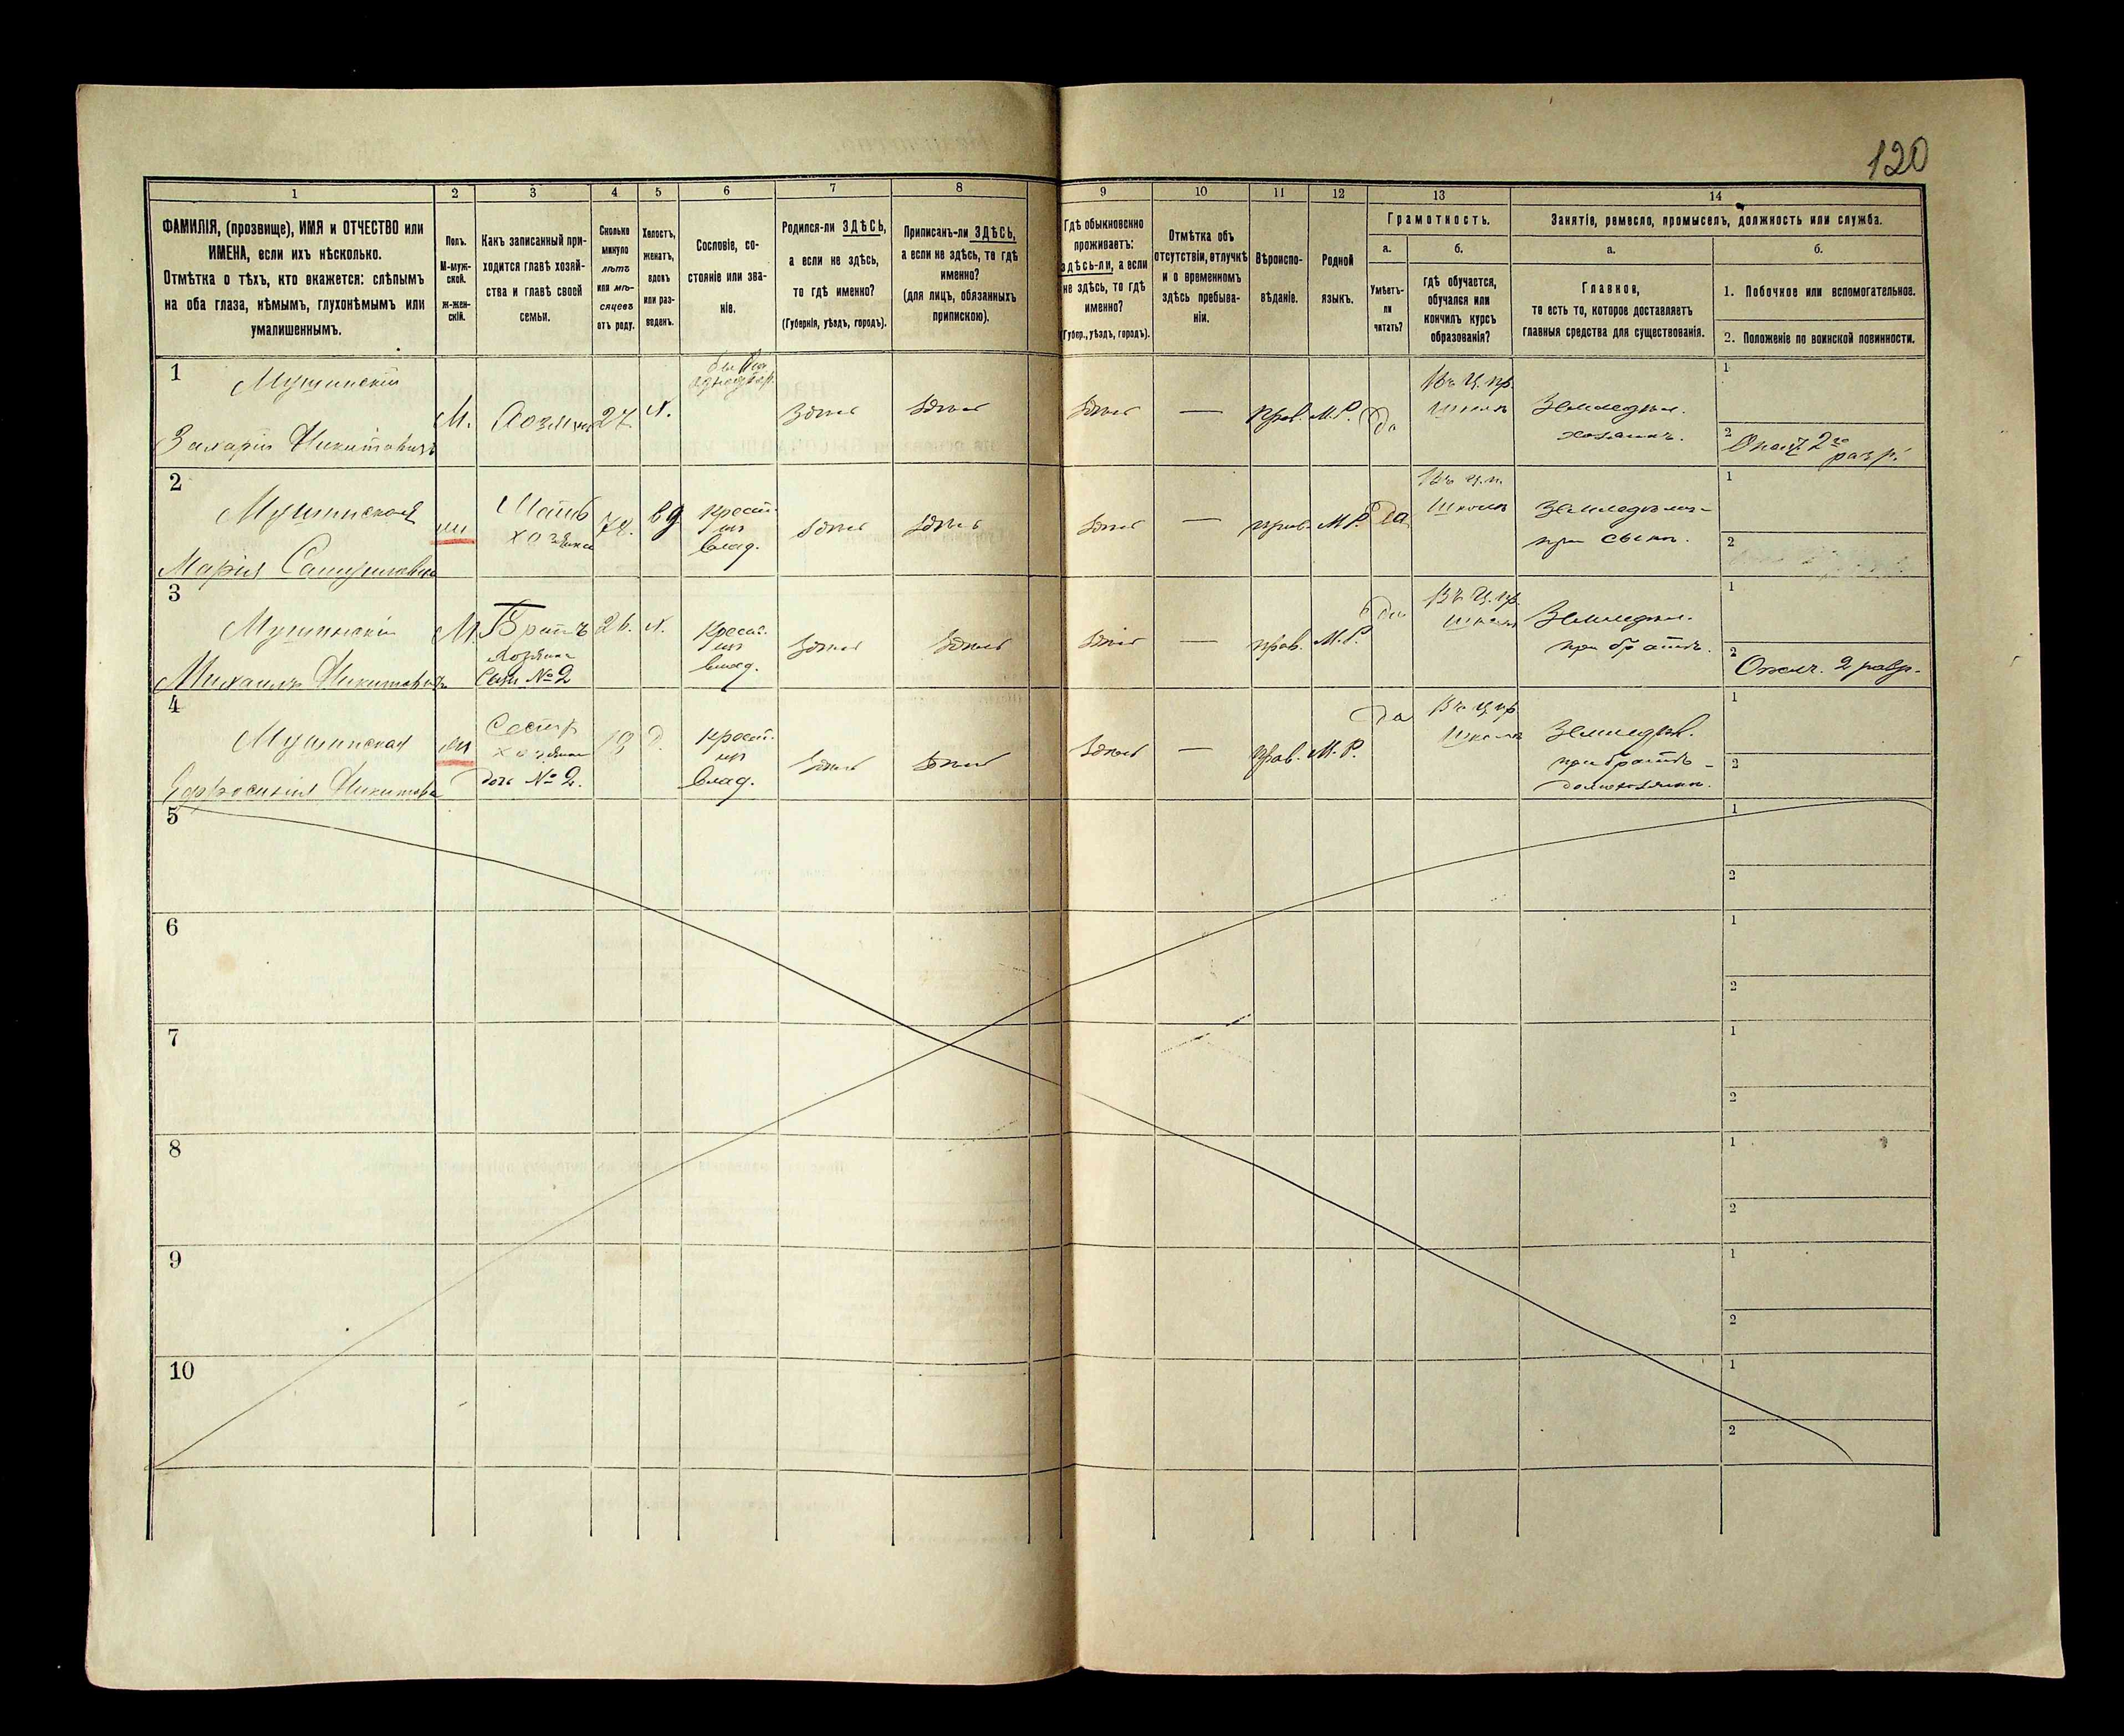 120
1 2 3 4 5 6 7 8 9 10 11 12 13 14
ФАМИЛІЯ, (прозвище), ИМЯ и ОТЧЕСТВО или
ИМЕНА, если ихъ нѣсколько.
Отмѣтка о тѣхъ, кто окажется: слѣпымъ
на оба глаза, нѣмымъ, глухонѣмымъ или
умалишеннымъ.
Полъ.
М-муж-
ской.
ж-жен-
скій.
Какъ записанный при-
ходится главѣ хозяй-
ства и главѣ своей
семьи.
Сколько
минуло
лѣтъ
или мѣ-
сяцевъ
отъ роду.
Холостъ,
женатъ,
вдовъ
или раз-
веденъ.
Сословіе, со-
стояніе или зва-
ніе.
Родился-ли ЗДѢСЬ,
а если не здѣсь,
то гдѣ именно?
(Губернія, уѣздъ, городъ).
Приписанъ-ли ЗДѢСЬ,
а если не здѣсь, то гдѣ
именно?
(для лицъ, обязанныхъ
припискою).
Гдѣ обыкновенно
проживаетъ:
здѣсь-ли, а если
не здѣсь, то гдѣ
именно?
(Губер., уѣздъ, городъ).
Отмѣтка объ
отсутствіи, отлучкѣ
и о временномъ
здѣсь пребыва-
ніи.
Вѣроиспо-
вѣданіе.
Родной
языкъ.
Грамотность.
а.
Умѣетъ-
ли
читать?
б.
гдѣ обучается,
обучался или
кончилъ курсъ
образованія?
Занятіе, ремесло, промыселъ, должность или служба.
а.
Главное,
то есть то, которое доставляетъ
главныя средства для существованія.
б.
1. Побочное или вспомогательное.
2. Положеніе по воинской повинности.
1
Мушинскій
Захарій Никитовичъ
М.
Хозяинъ
27
х.
здѣсь
здѣсь
здѣсь
—
прав.
М.Р.
да
Въ ц. пр.
школѣ
Земледѣл.
хозяинъ.
1
2
Ополч. 2го
разр.
2
Мушинская
Марія Самуиловна
ж
Мать
хозяина
вд
крест.
из
влад.
здѣсь
здѣсь
здѣсь
—
прав.
М.Р.
да
Въ ц. п.
школѣ
при сынѣ.
1
2
3
Мушинскій
Михаилъ Никитовичъ
М.
Братъ
хозяина
Сынъ № 2
26.
х.
Крест.
из
влад.
здѣсь
здѣсь
здѣсь
—
прав.
М.Р.
да
Въ ц. пр.
школѣ
Земледѣл.
при братѣ.
1
2
Ополч. 2 разр.
4
Мушинская
Ефросинія Никитовна
ж
Сестра
хозяина
дочь № 2.
д.
крест.
из
влад.
здѣсь
здѣсь
здѣсь
—
прав.
М.Р.
да
Въ ц. пр.
школѣ
Земледѣл.
при братѣ -
домохозяинѣ.
1
2
5
1
2
6
1
2
7
1
2
8
1
2
9
1
2
10
1
2